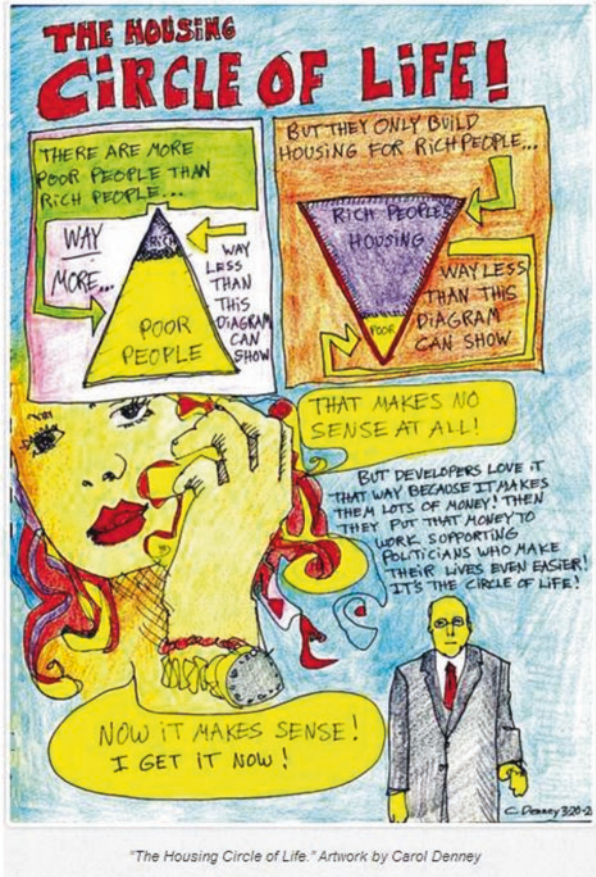 THE HOUSING
CIRCLE OF LIFE!
THERE ARE MORE
POOR PEOPLE THAN
RICH PEOPLE...
WAY
MORE...
RICH
POOR
PEOPLE
WAY
LESS
THAN
THIS
DIAGRAM
CAN
SHOW
BUT THEY ONLY BUILD
HOUSING FOR RICH PEOPLE...
RICH PEOPLES
HOUSING
POOR
WAY LESS
THAN THIS
DIAGRAM
CAN SHOW
THAT MAKES NO
SENSE AT ALL!
BUT DEVELOPERS LOVE IT
THAT WAY BECAUSE IT MAKES
THEM LOTS OF MONEY! THEN
THEY PUT THAT MONEY TO
WORK SUPPORTING
POLITICIANS WHO MAKE
THEIR LIVES EVEN EASIER!
IT'S THE CIRCLE OF LIFE!
NOW IT MAKES SENSE!
I GET IT NOW!
C. Denney
"The Housing Circle of Life." Artwork by Carol Denney